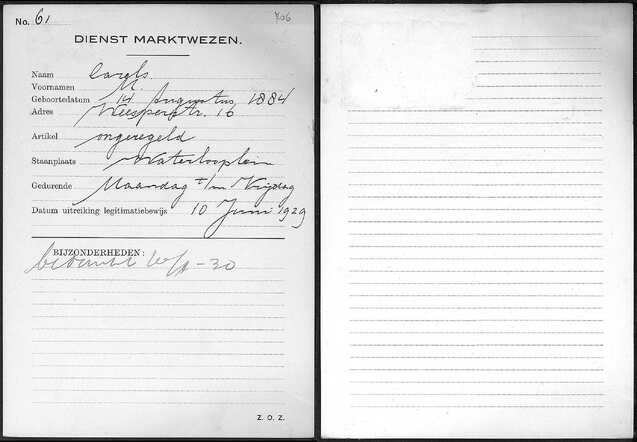 No. 61 706
DIENST MARKTWEZEN.
Naam
Voornamen M.
Geboortedatum 14 Augustus 1884
Adres Weesperstr. 16
Artikel ongeregeld
Staanplaats Waterlooplein
Gedurende Maandag t/m Vrijdag
Datum uitreiking legitimatiebewijs 10 Juni 1929
BIJZONDERHEDEN:
bedankt
Z. O. Z.